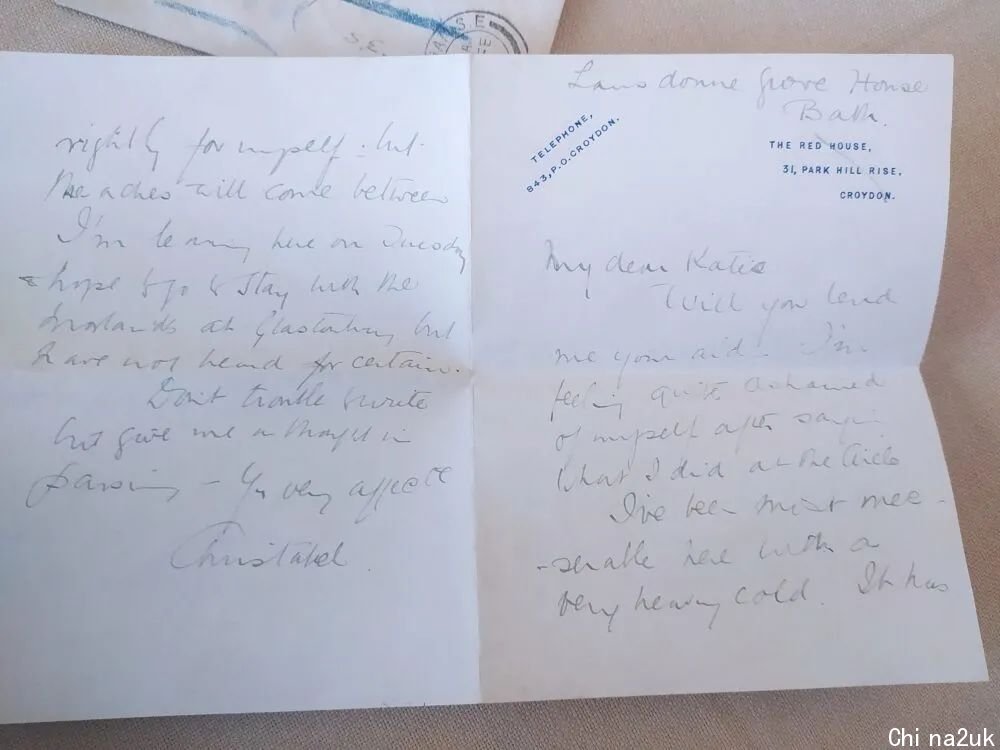 Lansdowne Grove House
Bath.
TELEPHONE,
843, P.O. CROYDON.
THE RED HOUSE,
31, PARK HILL RISE,
CROYDON.
My dear Katie
Will you lend
me your aid. I'm
feeling quite ashamed
of myself after saying
what I did at the Circle
I've been most mee-
-serable here with a
very heavy cold. It has
rightly for myself - but
the aches will come between
I'm leaving here on Tuesday
& hope to go & stay with the
at Glastonbury but
have not heard for certain.
Don't trouble to write
but give me a thought in
passing - Yr very affecte
Christabel.
S.E.
S.E.
Chi na2uk